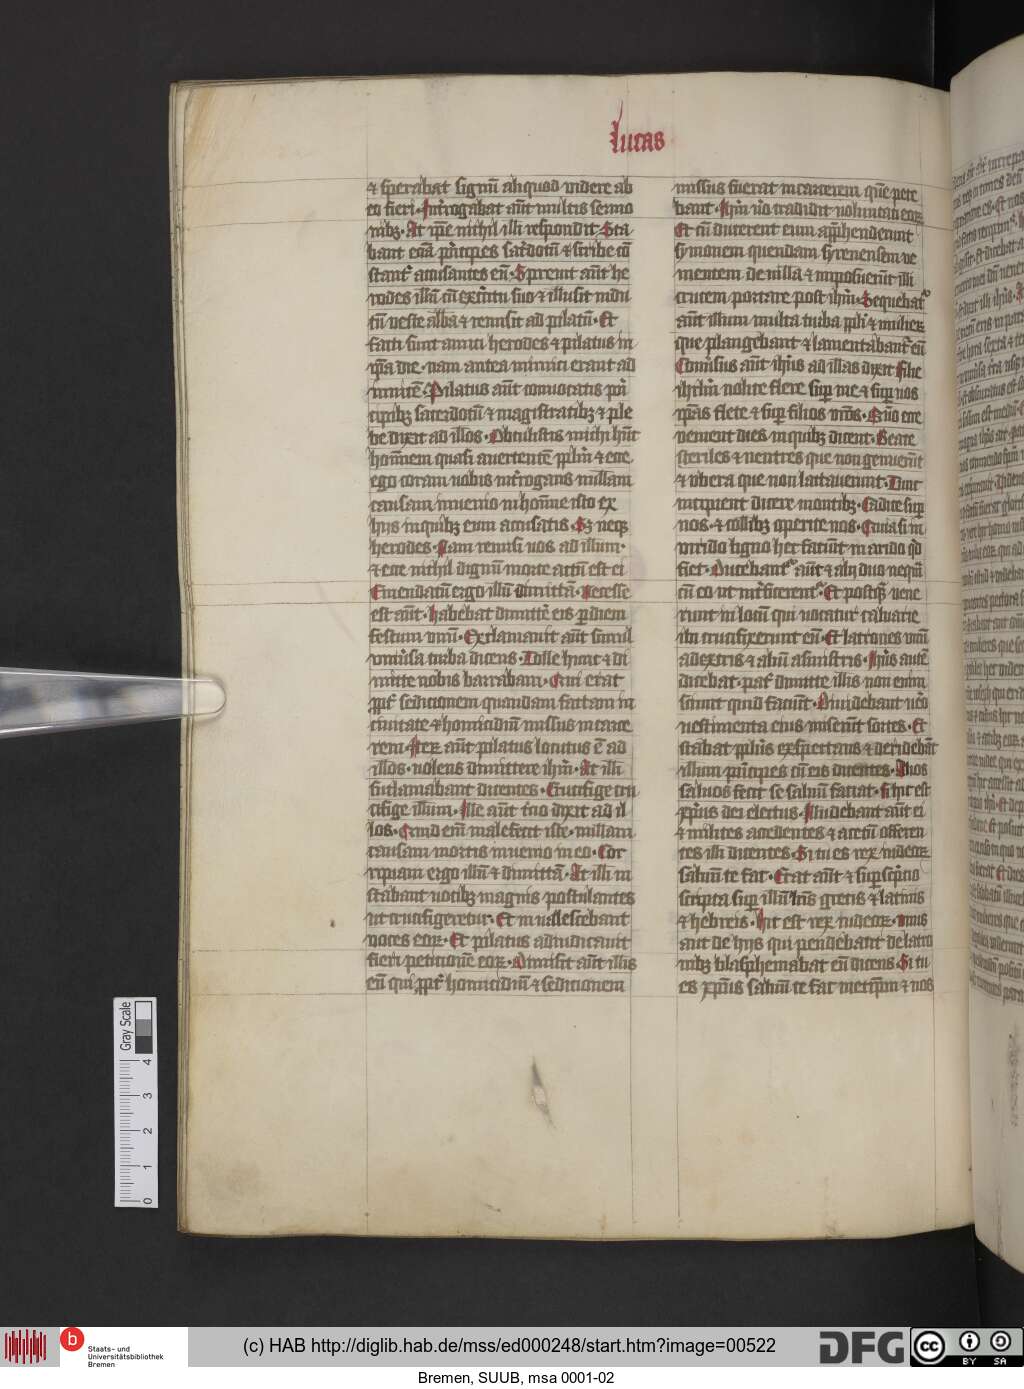 lucas
⁊ sperabat signū aliquod videre ab
eo fieri. Int̄rogabat aūt multis sermo
nibꝫ. At ip̄e nichil illi respondit. Sta
bant eciā p̄ncipes sac̄dotū ⁊ scribe cō
stant̄ accusantes eū. Spreuit aūt he
rodes illū cū exc̄itu suo ⁊ illusit indu
tū veste alba ⁊ remisit ad pilatū. Et
facti sunt amici herodes ⁊ pilatus in
ip̄a die. nam antea inimici erant ad
inuicē. Pilatus aūt conuocatis p̄n
cipibꝫ sacerdotū ⁊ magistratibꝫ ⁊ ple
be dixit ad illos. Obtulistis michi hūc
hoīnem quasi auertentē ppl̄m ⁊ ecce
ego coram vobis int̄rogans nullam
causam inuenio in hoīne isto ex
hijs in quibꝫ eum accusatis. Sꝫ neqꝫ
herodes. Nam remisi vos ad illum.
⁊ ecce nichil dignū morte actū est ei
Emendatū ergo illū dimittā. Necesse
est aūt. habebat dimitt̄e eis ꝑ diem
festum vnū. Exclamauit aūt simul
vniūsa turba dicens. Tolle hunc ⁊ di
mitte nobis barrabam. Qui erat
ꝓpt̄ sedicionem quandam factam in
ciuitate ⁊ homicidiū missus in carce
rem. Iteꝝ aūt pilatus locutus ē ad
illos. volens dimittere ih̄m. At illi
succlamabant dicentes. Crucifige cru
cifige illum. Ille aūt t̄cio dixit ad il
los. Quid em̄ mali fecit iste. nullam
causam mortis inuenio in eo. Cor
ripiam ergo illū ⁊ dimittā. At illi in
stabant vocibꝫ magnis postulantes
ut crucifigeretur. Et inualescebant
voces eoꝝ. Et pilatus adiudicauit
fieri peticionē eoꝝ. Dimisit aūt illis
eū qui ꝓpt̄ homicidiū ⁊ sedicionem
missus fuerat in carcerem quē pete
bant. Ih̄m ū̊o tradidit voluntati eoꝝ
Et cū ducerent eum app̄henderunt
symonem quendam syrenensem ve
nientem de villa ⁊ imposuerūt illi
crucem portare post ih̄m. Sequebat̄
aūt illum multa turba ppl̄i ⁊ mulieꝝ
que plangebant ⁊ lamentabant̄ eū
Conūsus aūt ih̄us ad illas dixit filie
ihrl̄m nolite flere suꝑ me ⁊ suꝑ vos
ip̄as flete ⁊ suꝑ filios vr̄os. Qm̄ ecce
venient dies in quibꝫ dicent. Beate
steriles ⁊ ventres que non genuerūt
⁊ vbera que non lactauerunt. Tunc
incipient dicere montibꝫ. Cadite suꝑ
nos. ⁊ collibꝫ operite nos. Quia si in
viridi ligno hec faciūt in arido qd̄
fiet. Ducebant̄ aūt ⁊ alij duo nequā
cū eo ut int̄ficerent̄. Et postqȝ vene
runt in locū qui vocatur caluarie
ibi crucifixerunt eū. Et latrones vnū
a dextris ⁊ aliū a sinistris. Ih̄us autē
dicebat. pat̄ dimitte illis non enim
sciunt quid faciūt. Diuidebant ūo
vestimenta eius miserūt sortes. Et
stabat ppl̄us exspectans ⁊ deridebāt
illum p̄ncipes cū eis dicentes. Alios
saluos fecit se saluū faciat. si hic est
xp̄us dei electus. Illudebant aūt ei
⁊ milites accedentes ⁊ acetū offeren
tes illi dicentes. Si tu es rex iudeoꝝ
saluū te fac. Erat aūt ⁊ suꝑscp̄tio
scripta suꝑ illū lr̄is grecis ⁊ latinis
⁊ hebreis. Hic est rex iudeoꝝ. vnus
aut de hijs qui pendebant de latro
nibꝫ blasphemabat eū dicens. Si tu
es xp̄us saluū te fac metip̄m ⁊ nos
Gray Scale
4
3
2
1
0
b
Staats- und
Universitätsbibliothek
Bremen
(c) HAB http://diglib.hab.de/mss/ed000248/start.htm?image=00522
DFG
cc
BY SA
Bremen, SUUB, msa 0001-02